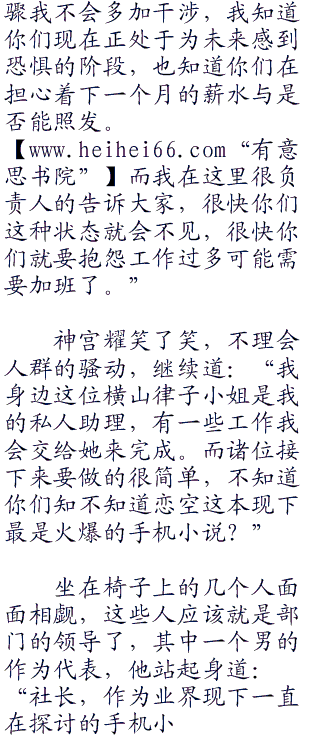 骤我不会多加干涉，我知道
你们现在正处于为未来感到
恐惧的阶段，也知道你们在
担心着下一个月的薪水与是
否能照发。
【www.heihei66.com“有意
思书院”】而我在这里很负
责人的告诉大家，很快你们
这种状态就会不见，很快你
们就要抱怨工作过多可能需
要加班了。”
神宫耀笑了笑，不理会
人群的骚动，继续道：“我
身边这位横山律子小姐是我
的私人助理，有一些工作我
会交给她来完成。而诸位接
下来要做的很简单，不知道
你们知不知道恋空这本现下
最是火爆的手机小说？”
坐在椅子上的几个人面
面相觑，这些人应该就是部
门的领导了，其中一个男的
作为代表，他站起身道：
“社长，作为业界现下一直
在探讨的手机小